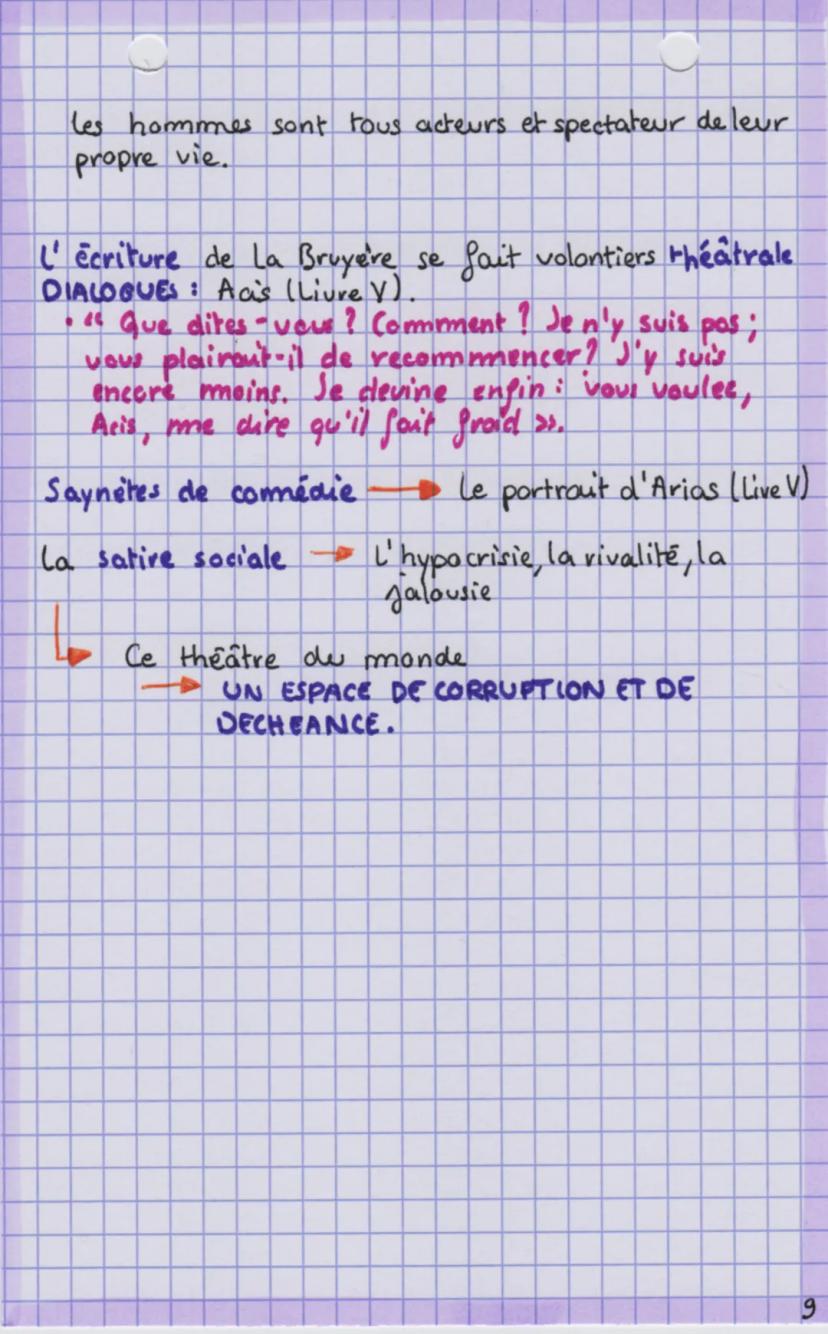 les hommes sont tous acteurs et spectateur de leur
propre vie.
L' écriture de La Bruyère se fait volontiers théâtrale
DIALOGUES : Acis (Livre V).
• " Que dites-vous ? Comment ? Je n'y suis pas ;
vous plairait-il de recommmencer ? J'y suis
encore moins. Je devine enfin : vous voulez,
Acis, me dire qu'il fait froid ».
Saynètes de comédie → Le portrait d'Arias (Live V)
La satire sociale → L'hypocrisie, la rivalité, la
jalousie
Ce théâtre du monde
→ UN ESPACE DE CORRUPTION ET DE
DECHEANCE.
9